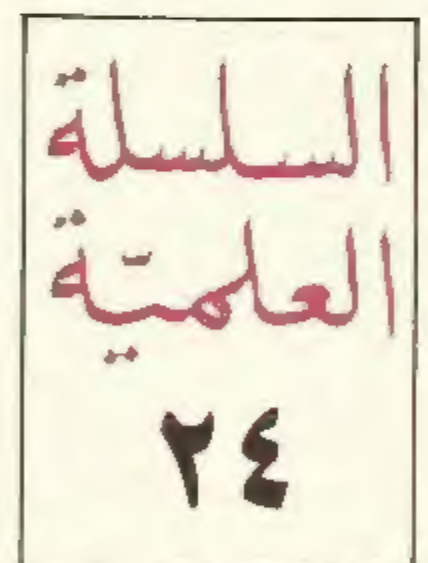 السلسلة
العلميّة
٢٤